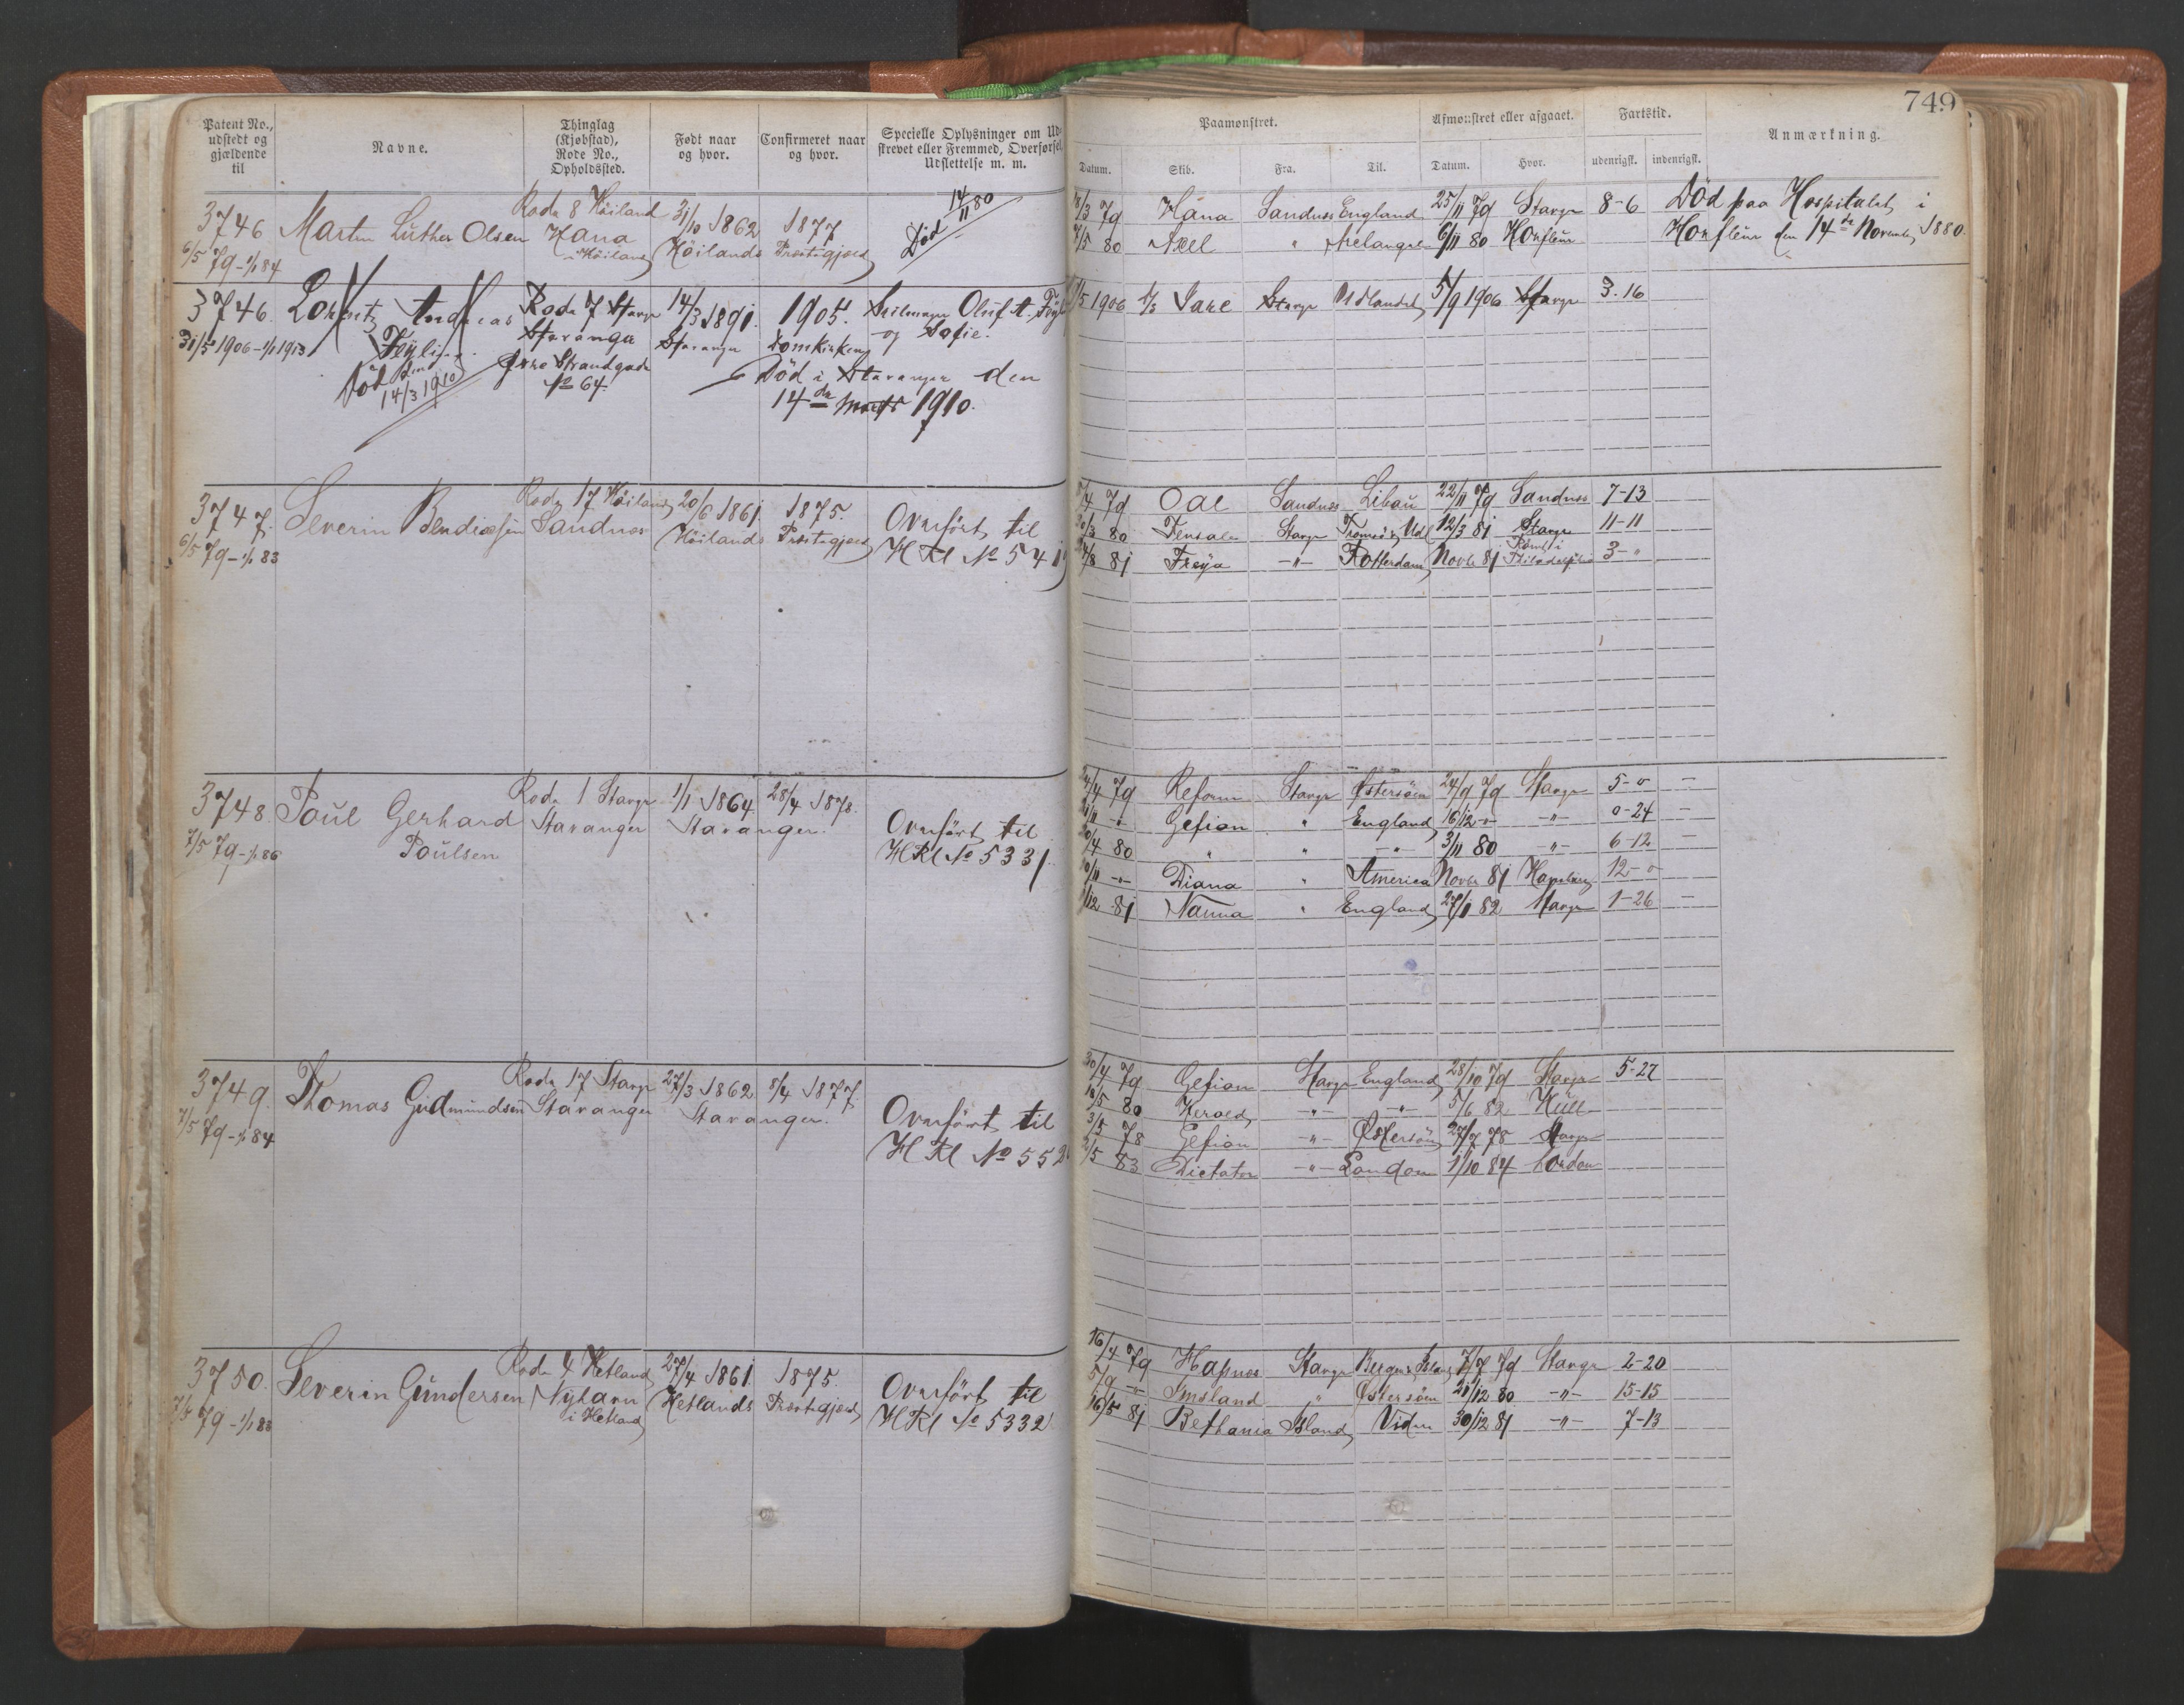 749
Patent No., udstedt og gjældende til
Navne.
Thinglag (Kjøbstad), Rode No., Opholdssted.
Født naar og hvor.
Confirmeret naar og hvor.
Specielle Oplysninger om Udskrevet eller Fremmed, Overførsel, Udslettelse m. m.
Paamønstret.
Datum. Skib. Fra. Til.
Afmønstret eller afgaaet.
Datum. Hvor.
Fartstid.
udenrigsk. indenrigsk.
Anmærkning.
3746 Martin Luther Olsen Rode 8 Höiland 31/10 1862 1877 Död 14/11 80
6/5 79-1/1 84 Hana i Höiland Höilands Præstegjeld
18/3 79 Hana Sandnes England 25/11 79 Stavgr 8-6 Död paa Hospitalet i
7/5 80 Axel " 6/11 80 Honfleur Honfleur den 14de November 1880.
3746. Lorentz Andreas Rode 7 Stavgr 14/3 1891. 1905. Oluf A.
31/5 1906-1/1 1913 Stavanger Stavanger Domkirken og Sofie.
Död den 14/3 1910 Øvre Strandgade No 64. Död i Stavanger den
14de Marts 1910.
5 1906 Stavgr Udlandet 5/9 1906 Stavgr 3.16
3747. Severin Rode 17 Höiland 20/6 1861. 1875. Overført til
6/5 79-1/1 83 Sandnes Höilands Præstegjeld H Kl No 541
4 79 Sandnes Libau 22/11 79 Sandnes 7-13
3 80 Stavgr Tromsö, Udl 12/3 81 Stavgr 11-11
8 81 Freya -"- Rotterdam Novbr 81 Rømt i Philadelphia 3-"
3748. Poul Gerhard Rode 1 Stavgr 1/1 1864. 28/4 1878. Overført til
7/5 79-1/1 86 Poulsen Stavanger Stavanger. HKl No 5331.
4 79 Reform Stavgr Østersöen 24/9 79 Stavgr 5-0 -
11 -"- Gefion " England 16/12 -"- -"- 0-24 -
4 80 " " -"- 3/11 80 -"- 6-12 -
11 -"- Diana " America Novbr 81 12-0
12 81 Nanna " England 27/1 82 Stavgr 1-26 -
3749. Thomas Gudmundsen Rode 17 Stavgr 27/3 1862 8/4 1877. Overført til
7/5 79-1/1 84 Stavanger Stavanger. H Kl No 552
30/4 79 Gefion Stavgr England 28/10 79 Stavgr 5-27
5 80 Herold -"- -"- 5/6 82 Hull
3/5 78 Gefion -"- Østersöen 27/7 78 Stavgr
5 83 Dictator -"- London 1/10 84 London
3750. Severin Gundersen Rode 4 Hetland 27/4 1861. 1875. Overført til
79-1/1 83 Nyhavn i Hetland Hetlands Præstegjeld HKl No 5332
16/4 79 Stavgr 7/7 79 Stavgr 2-20
5/9 -"- Imsland " Østersöen 21/12 80 -"- 15-15
16/5 81 Bethania Island 30/12 81 -"- 7-13